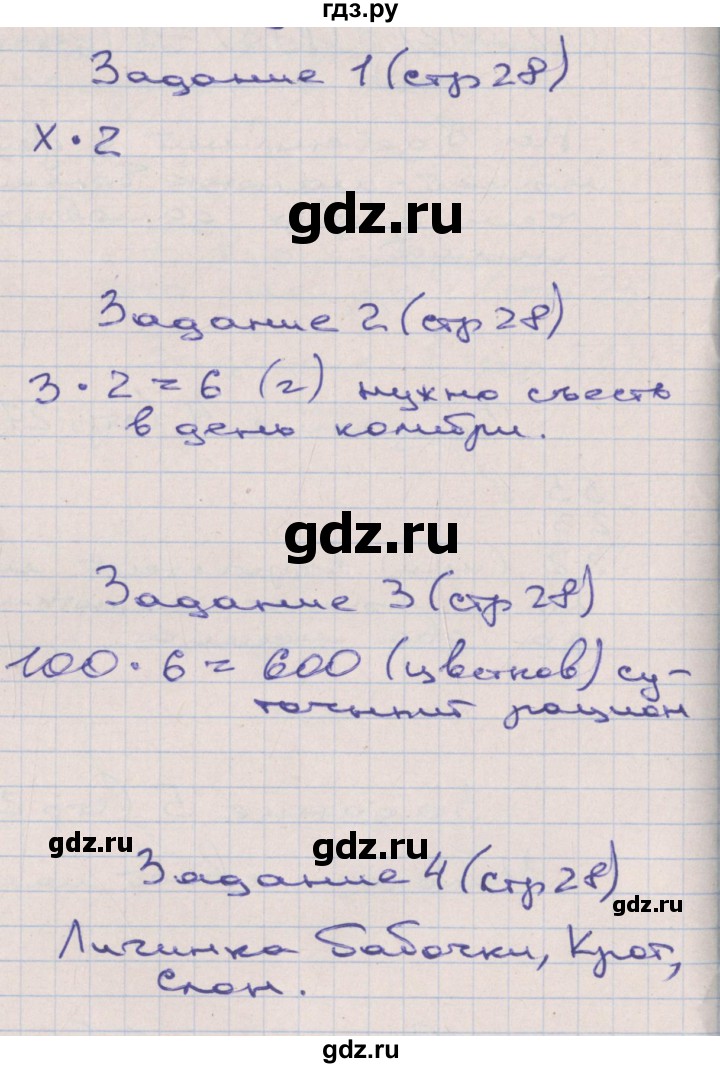 гдз.ру
Задание 1 (стр 28)
х · 2
gdz.ru
Задание 2 (стр 28)
3 · 2 = 6 (г) нужно съесть
в день колибри.
gdz.ru
Задание 3 (стр 28)
100 · 6 = 600 (цветков) су-
рацион
gdz.ru
gdz.ru
Задание 4 (стр 28)
gdz.ru
Личинка бабочки, Крот,
Слон.
gdz.ru